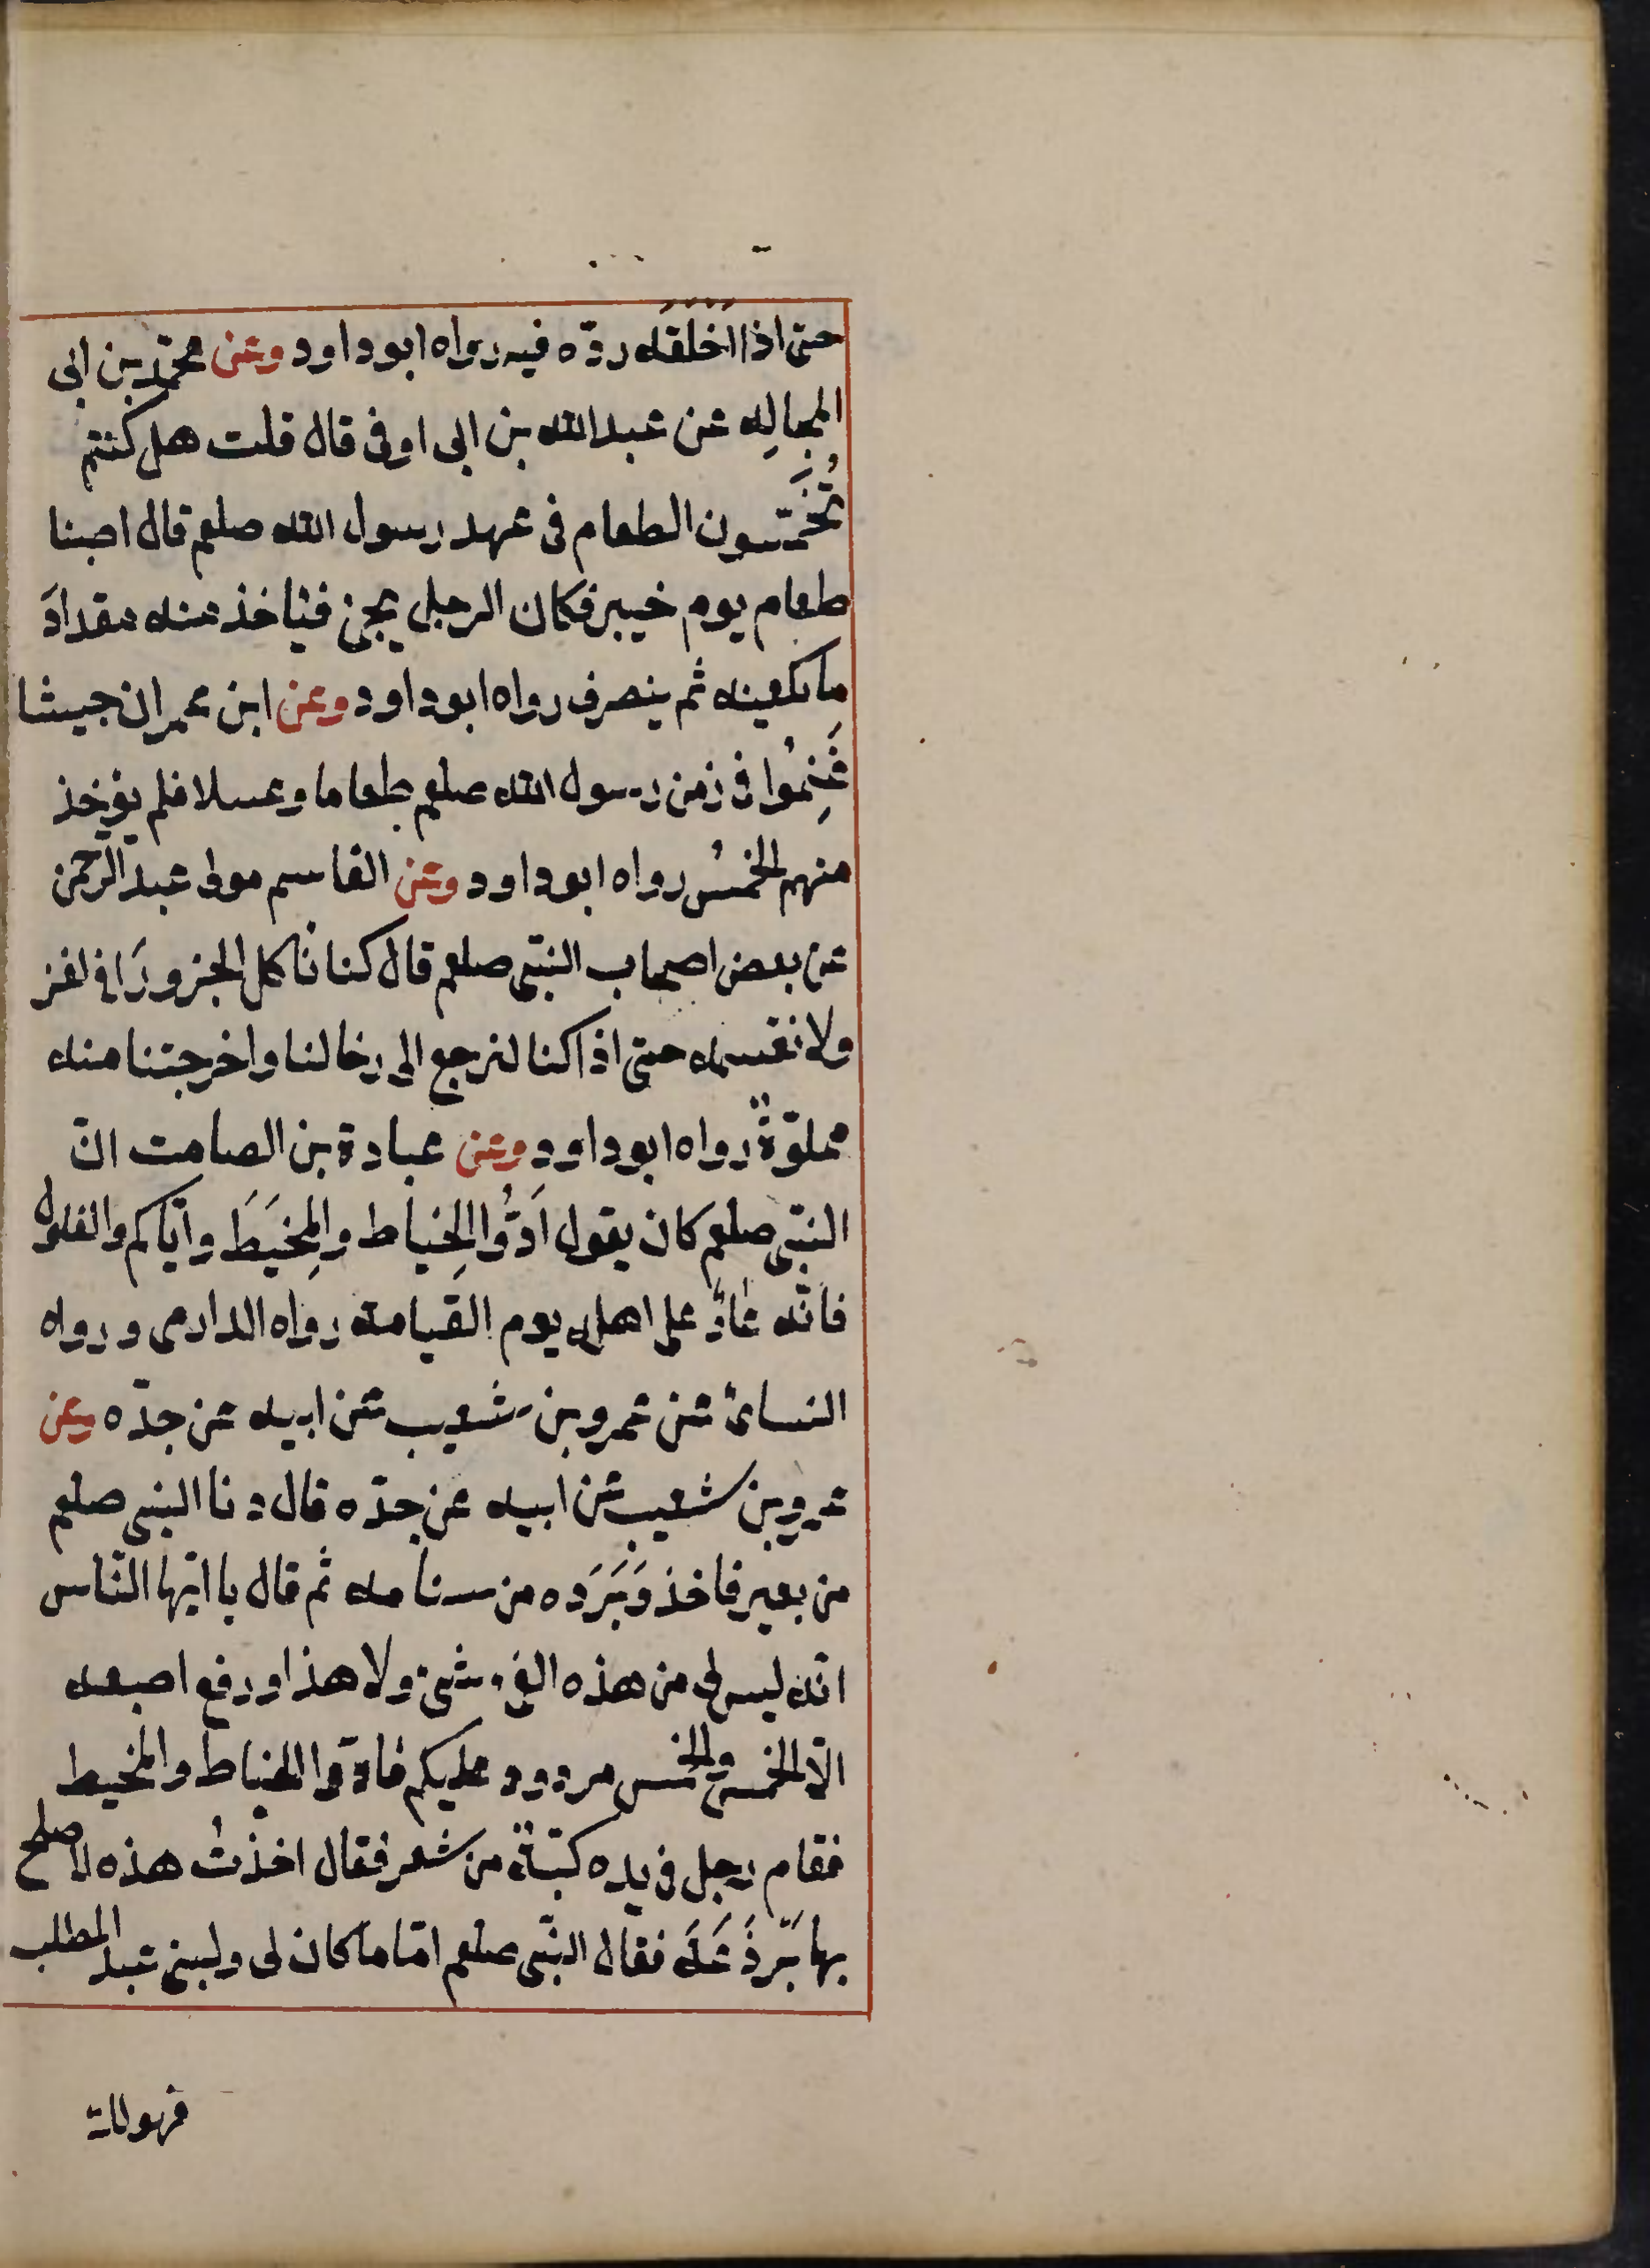 حتى اذا اَخْلَقَه ردّه فيه رواه ابو داود وعن محمّد بن ابى
المجالِد عن عبد الله بن ابى اوفى قال قلت هل كنتم
تُخَمّسون الطعام فى عهد رسول الله صلعم قال اصبنا
طعام يوم خيبر فكان الرجل يجئ فياخذ منه مقدارَ
ما يكفيه ثم ينصرف رواه ابو داود وعن ابن عمر ان جيشا
غَنِمُوا فى زمن رسول الله صلعم طعاما وعسلا فلم يؤخذ
منهم الخمسُ رواه ابو داود وعن القاسم مولى عبد الرحمن
عن بعض اصحاب النبّى صلعم قال كنا ناكل الجزورَ فى الغز
ولا نقسمه حتى اذا كنا لنرجع الى رحالنا واخرجتنا منه
مملوّةٌ رواه ابو داود وعن عبادة بن الصامت انّ
النبّى صلعم كان يقول اَدُّوا الِخياط والمِخيَطَ وايّاكم والغلول
فانّه عارٌ على اهله يوم القيامة رواه الدارمى ورواه
النسائ عن عمرو بن شعيب عن ابيه عن جدّه وعن
عمرو بن شعيب عن ابيه عن جدّه قال دنا النبى صلعم
من بعير فاخذ وَبَرَوه من سنامه ثم قال يا ايّها النّاس
انّه ليس لى من هذه الفئ شئ ولا هذا ورفع اصبعه
الّا الخمس والخمس مردود عليكم فادّوا الخياط والمخيط
فقام رجل فى يده كبّة من شعر فقال اخذتُ هذه لاصلح
بها بَرْذَعَة فقال النبّى صلعم امّا ما كان لى ولبنى عبد المطلب
فهو لك